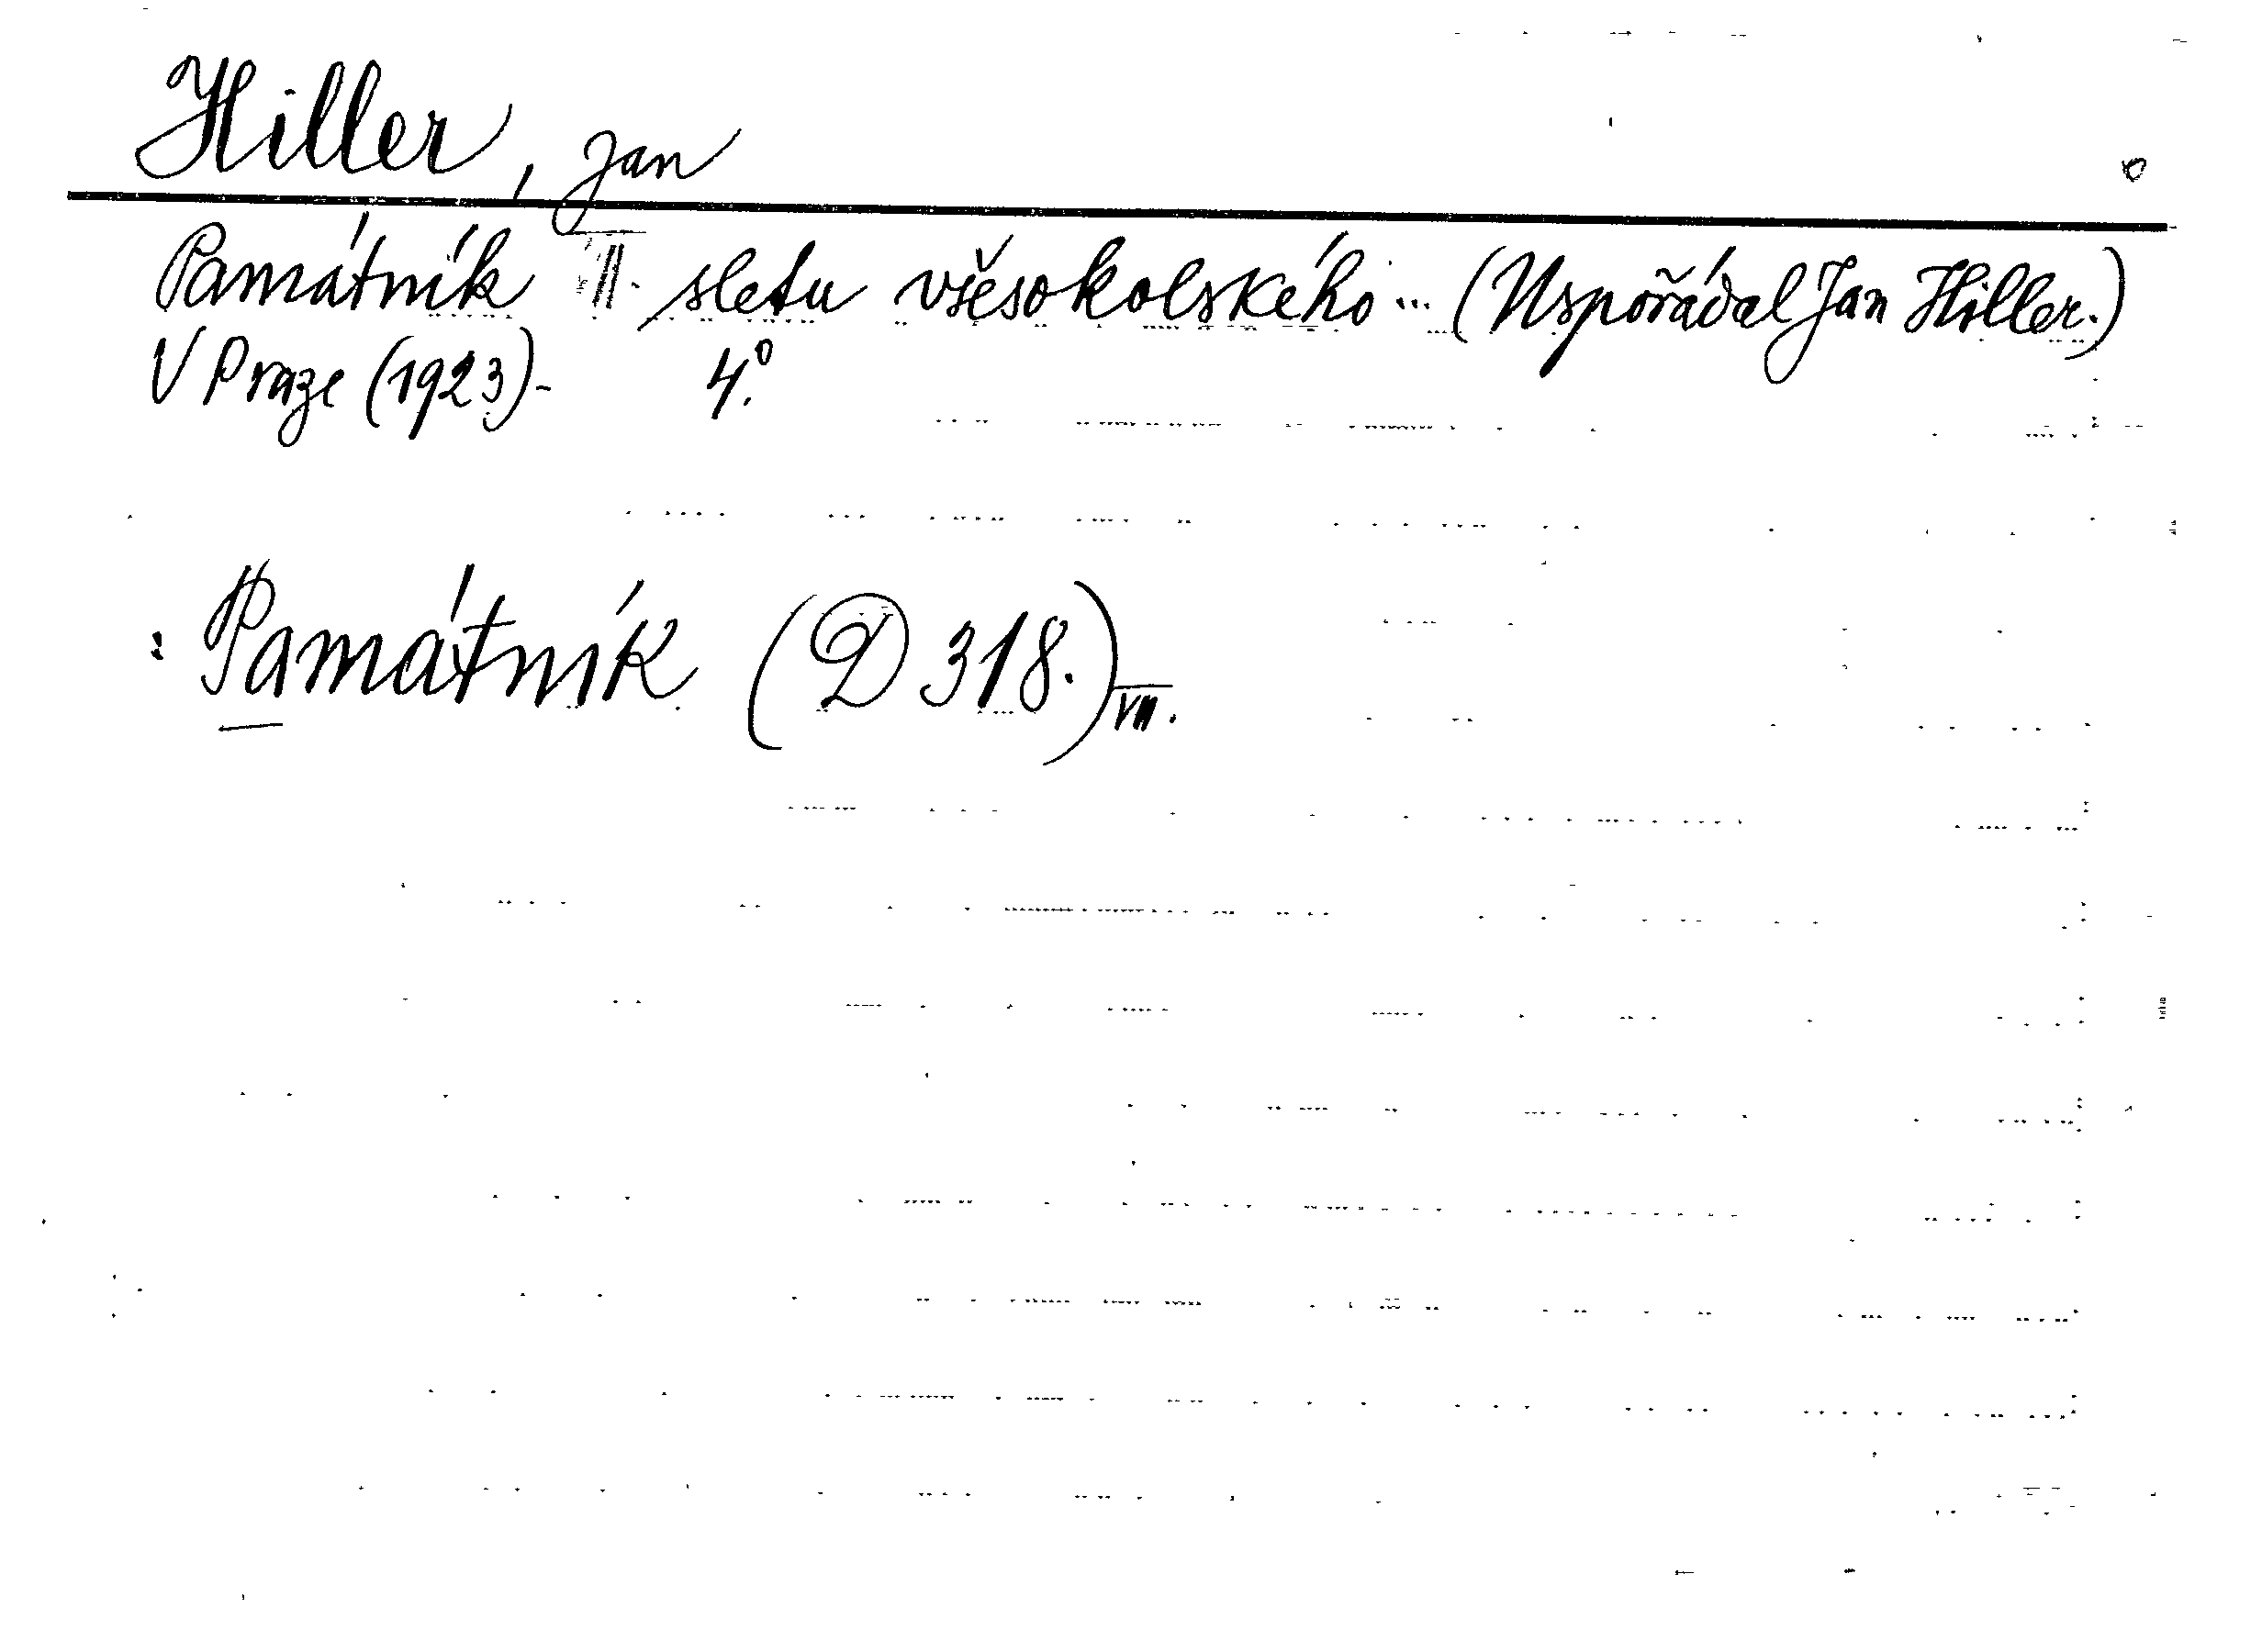 Hiller, Jan
Památník VII. sletu všesokolského ... (Uspořádal Jan Hiller.)
V Praze (1923)- 4.°
: Památník (D 318.) VII.